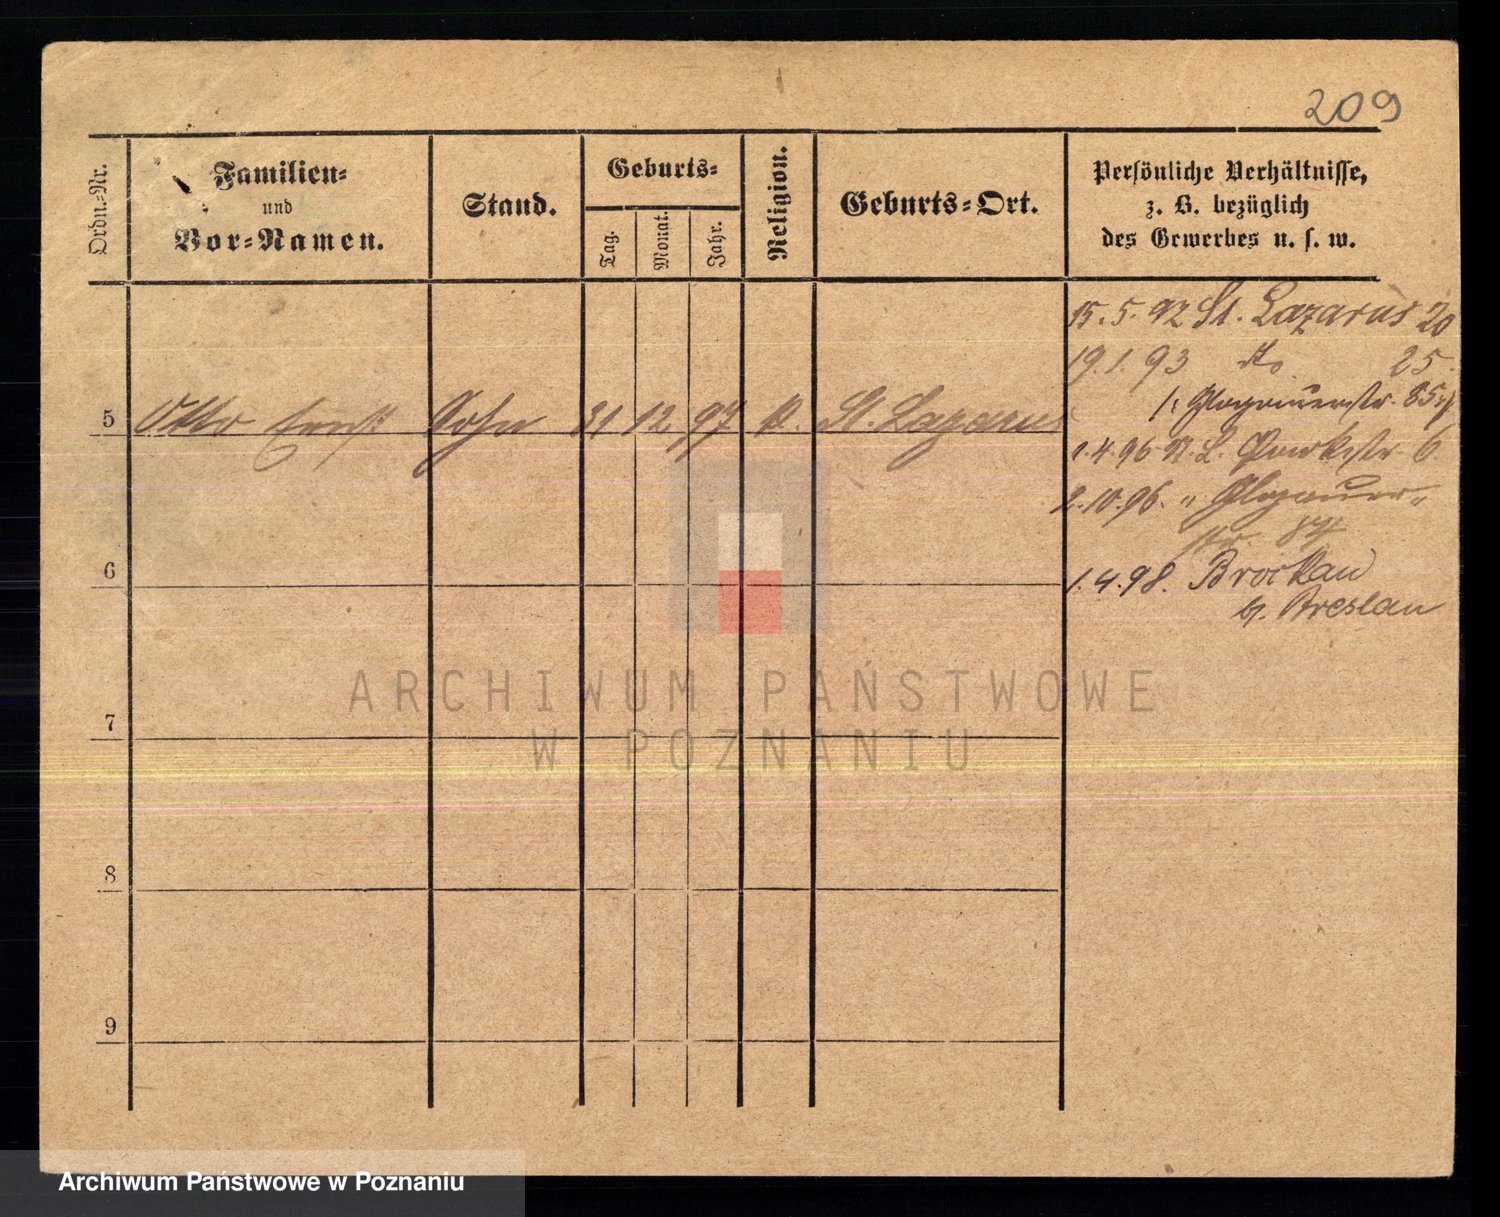 209
Ordn.-Nr.
Familien-
und
Vor-Namen.
Stand.
Geburts-
Tag.
Monat.
Jahr.
Religion.
Geburts-Ort.
Persönliche Verhältnisse,
z. B. bezüglich
des Gewerbes u. s. w.
15.5.92 St. Lazarus 20
19.1.93 do 25
/: Glogauerstr. 85 :/
5 Otto Ernst Sohn 31 12 97 k. St. Lazarus
1.4.96 St. L. Parkstr. 6
2.10.96. „ Glogauer-
str. 84
6
1.4.98. Brockau
b. Breslau
7
8
9
ARCHIWUM PAŃSTWOWE
W POZNANIU
Archiwum Państwowe w Poznaniu